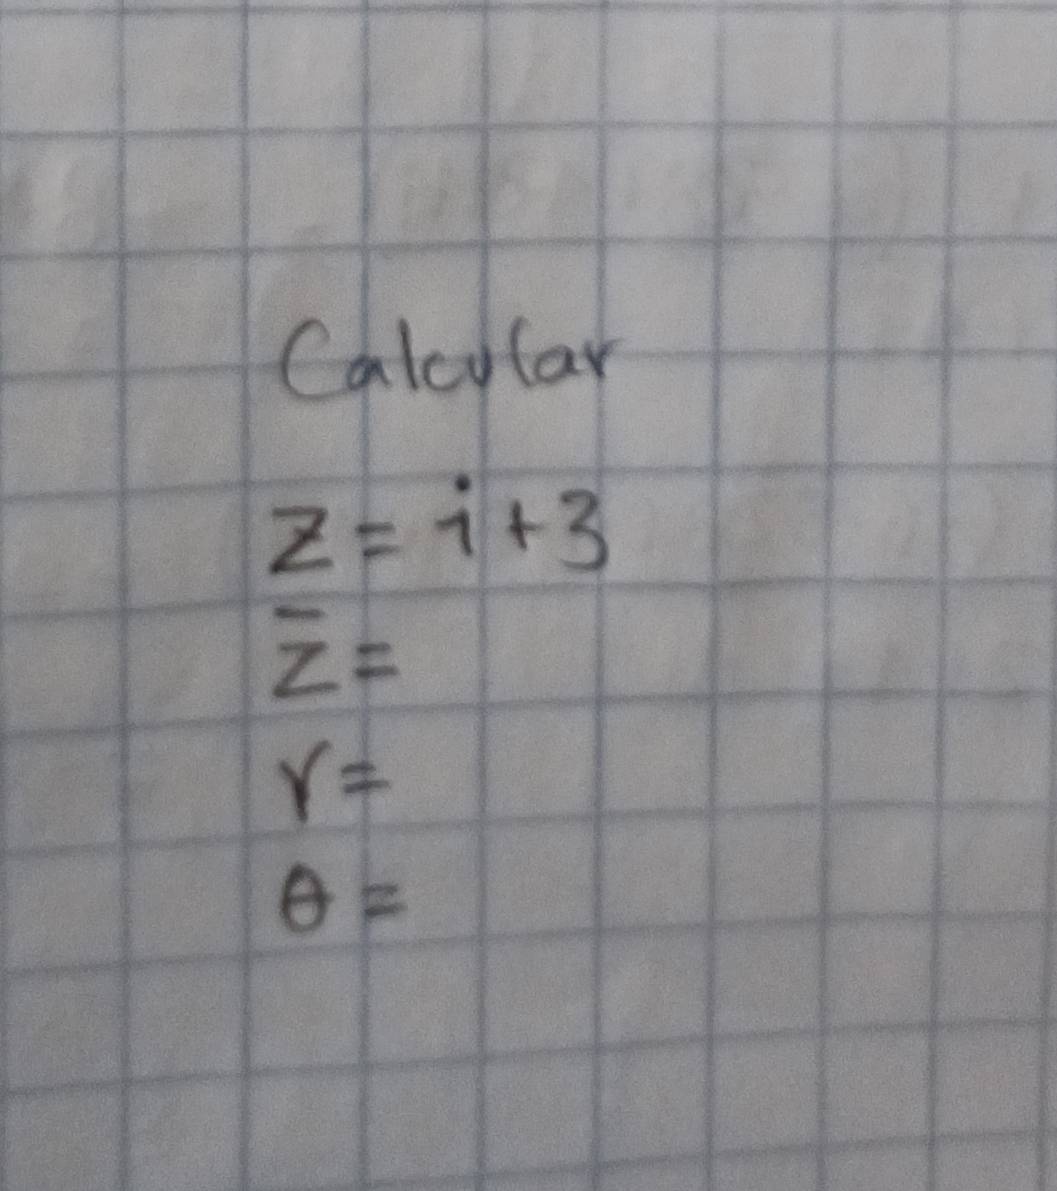 Calcular
z = i + 3
z̄ =
r =
θ =